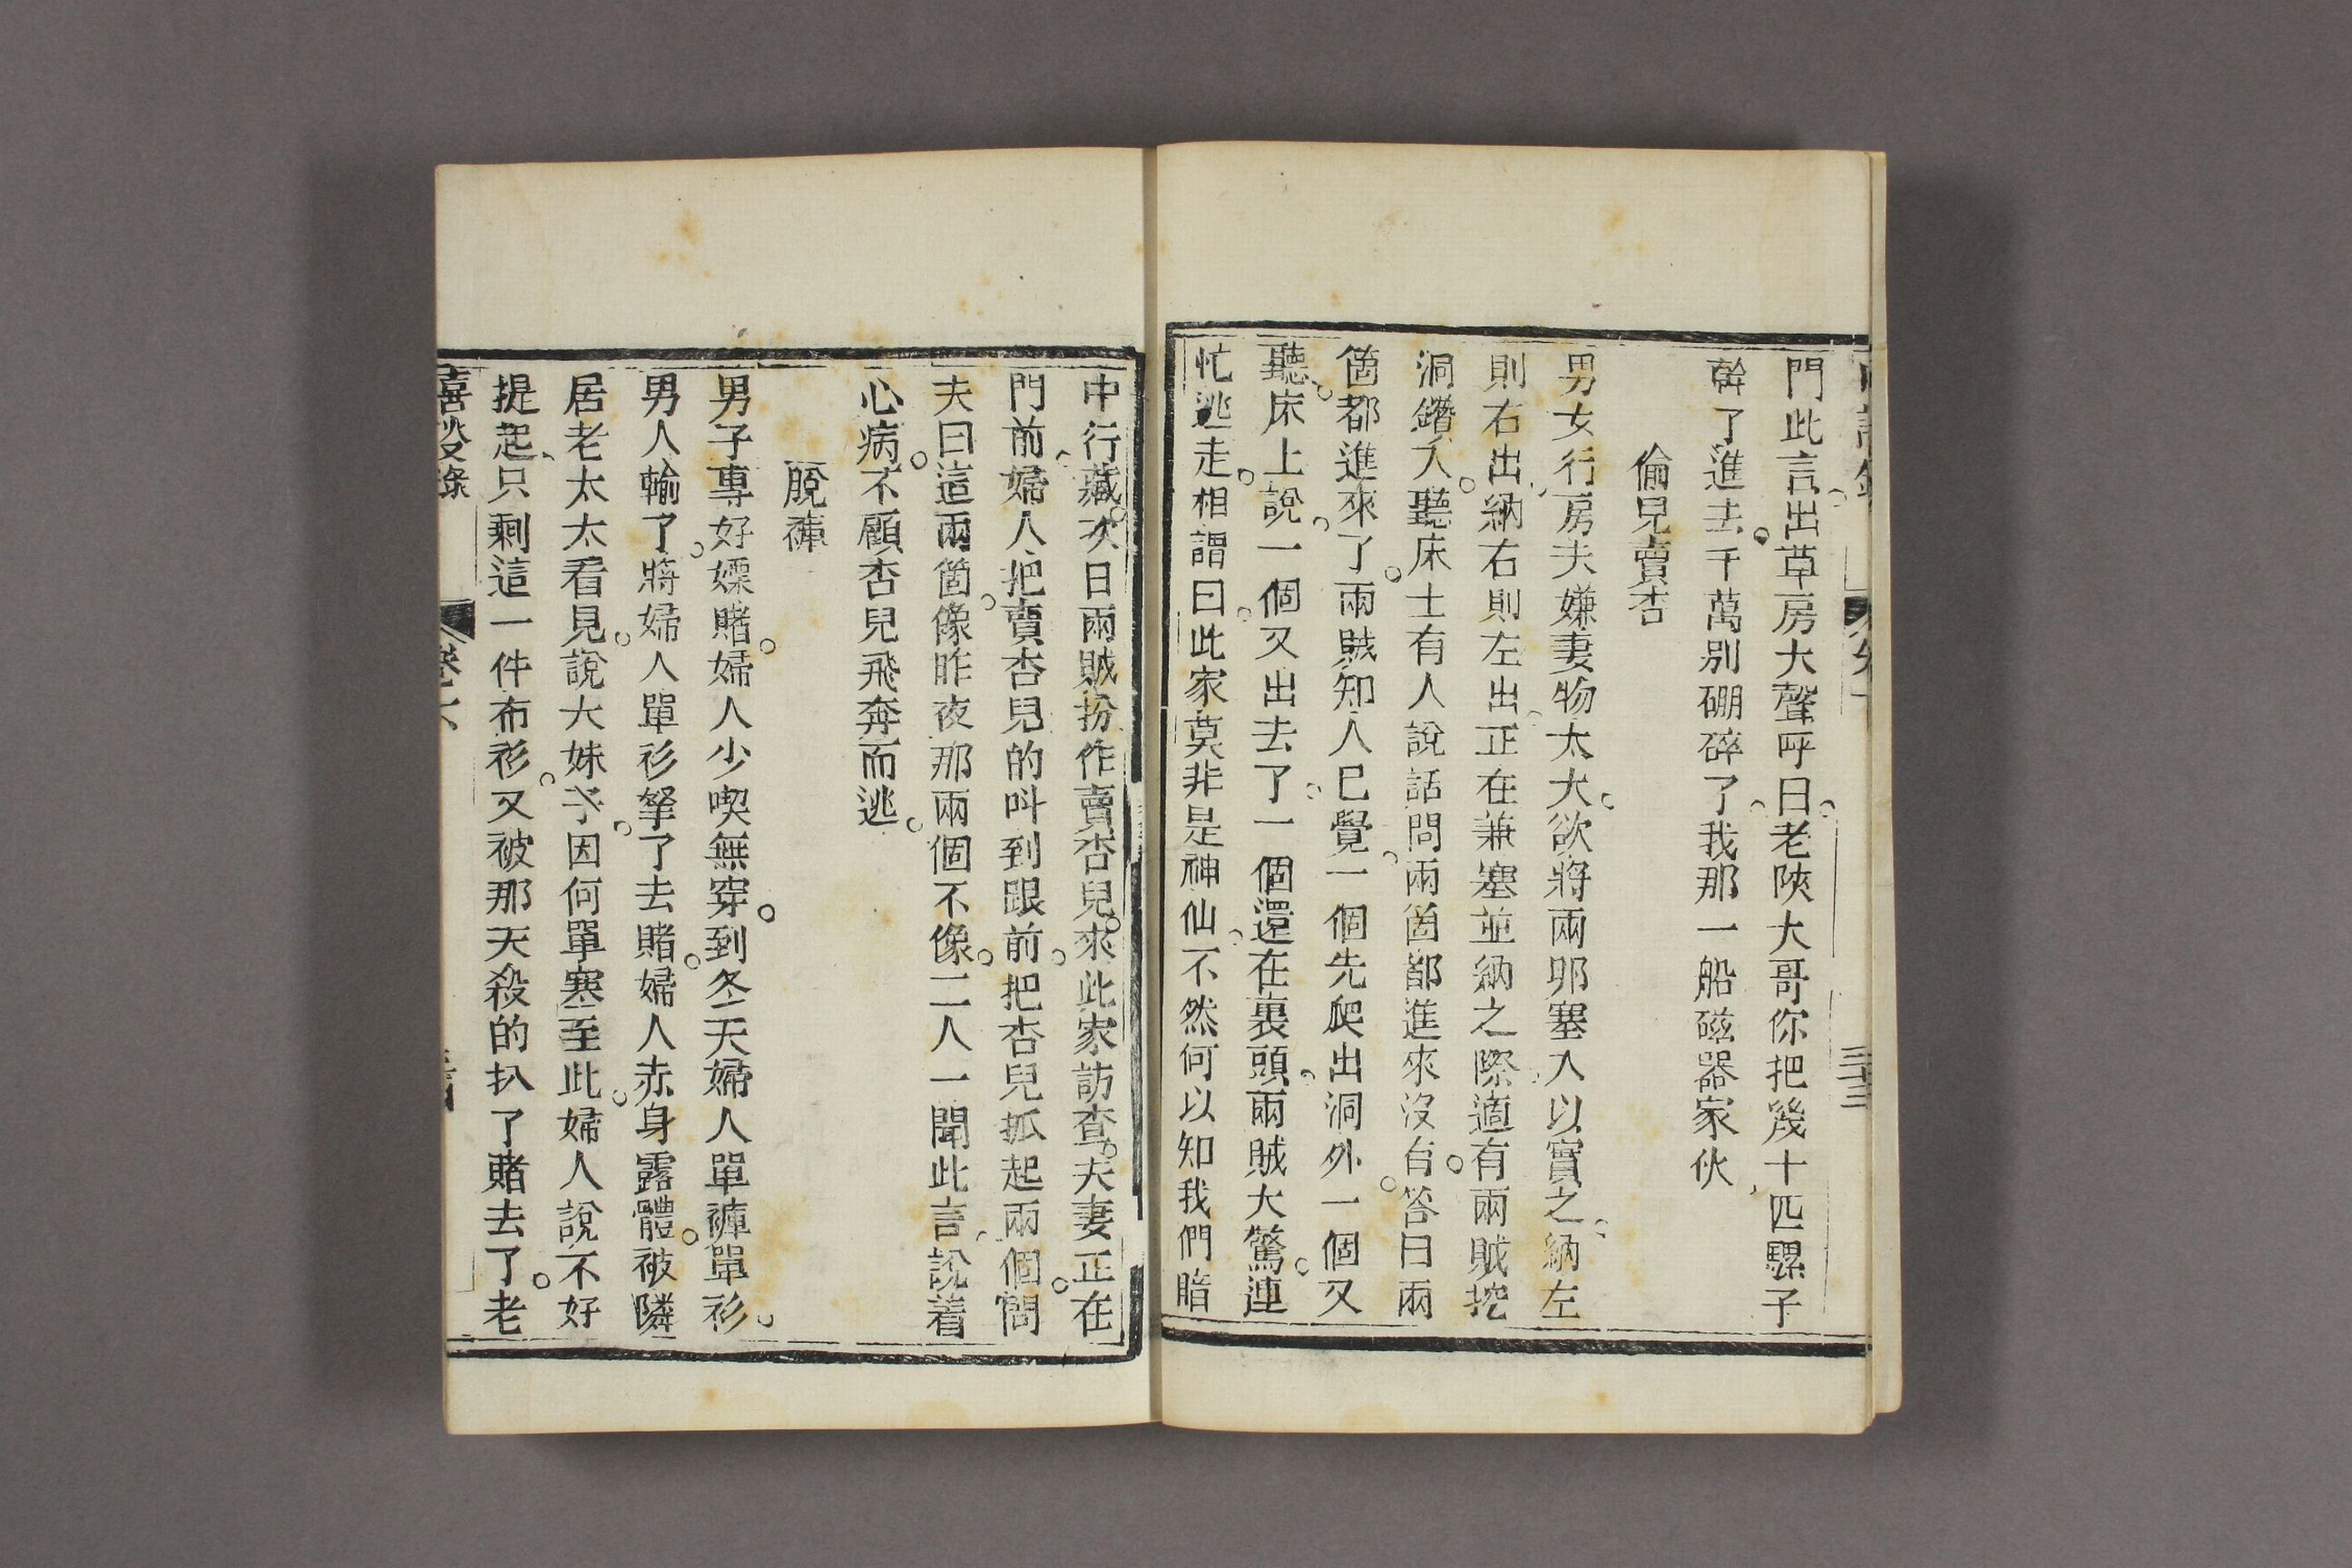 門此言出草房大聲呼曰老陝大哥你把幾十匹騾子
幹了進去千萬別硼碎了我那一船磁器家伙
偷兒賣杏
男女行房夫嫌妻物太大欲將兩卵塞入以實之納左
則右出納右則左出正在兼塞並納之際適有兩賊挖
洞鑽入聽床上有人說話問兩箇都進來沒台答曰兩
箇都進來了兩賊知人已覺一個先爬出洞外一個又
聽床上說一個又出去了一個還在裏頭兩賊大驚連
忙逃走相謂曰此家莫非是神仙不然何以知我們暗
三十三
中行藏次日兩賊扮作賣杏兒來此家訪查夫妻正在
門前婦人把賣杏兒的叫到跟前把杏兒抓起兩個問
夫曰這兩箇像昨夜那兩個不像二人一聞此言說着
心病不顧杏兒飛奔而逃
脫褲
男子專好嫖賭婦人少喫無穿到冬天婦人單褲單衫
男人輸了將婦人單衫拏了去賭婦人赤身露體被隣
居老太太看見說大妹子因何單寒至此婦人說不好
提起只剩這一件布衫又被那天殺的扒了賭去了老
喜談錄
卷下